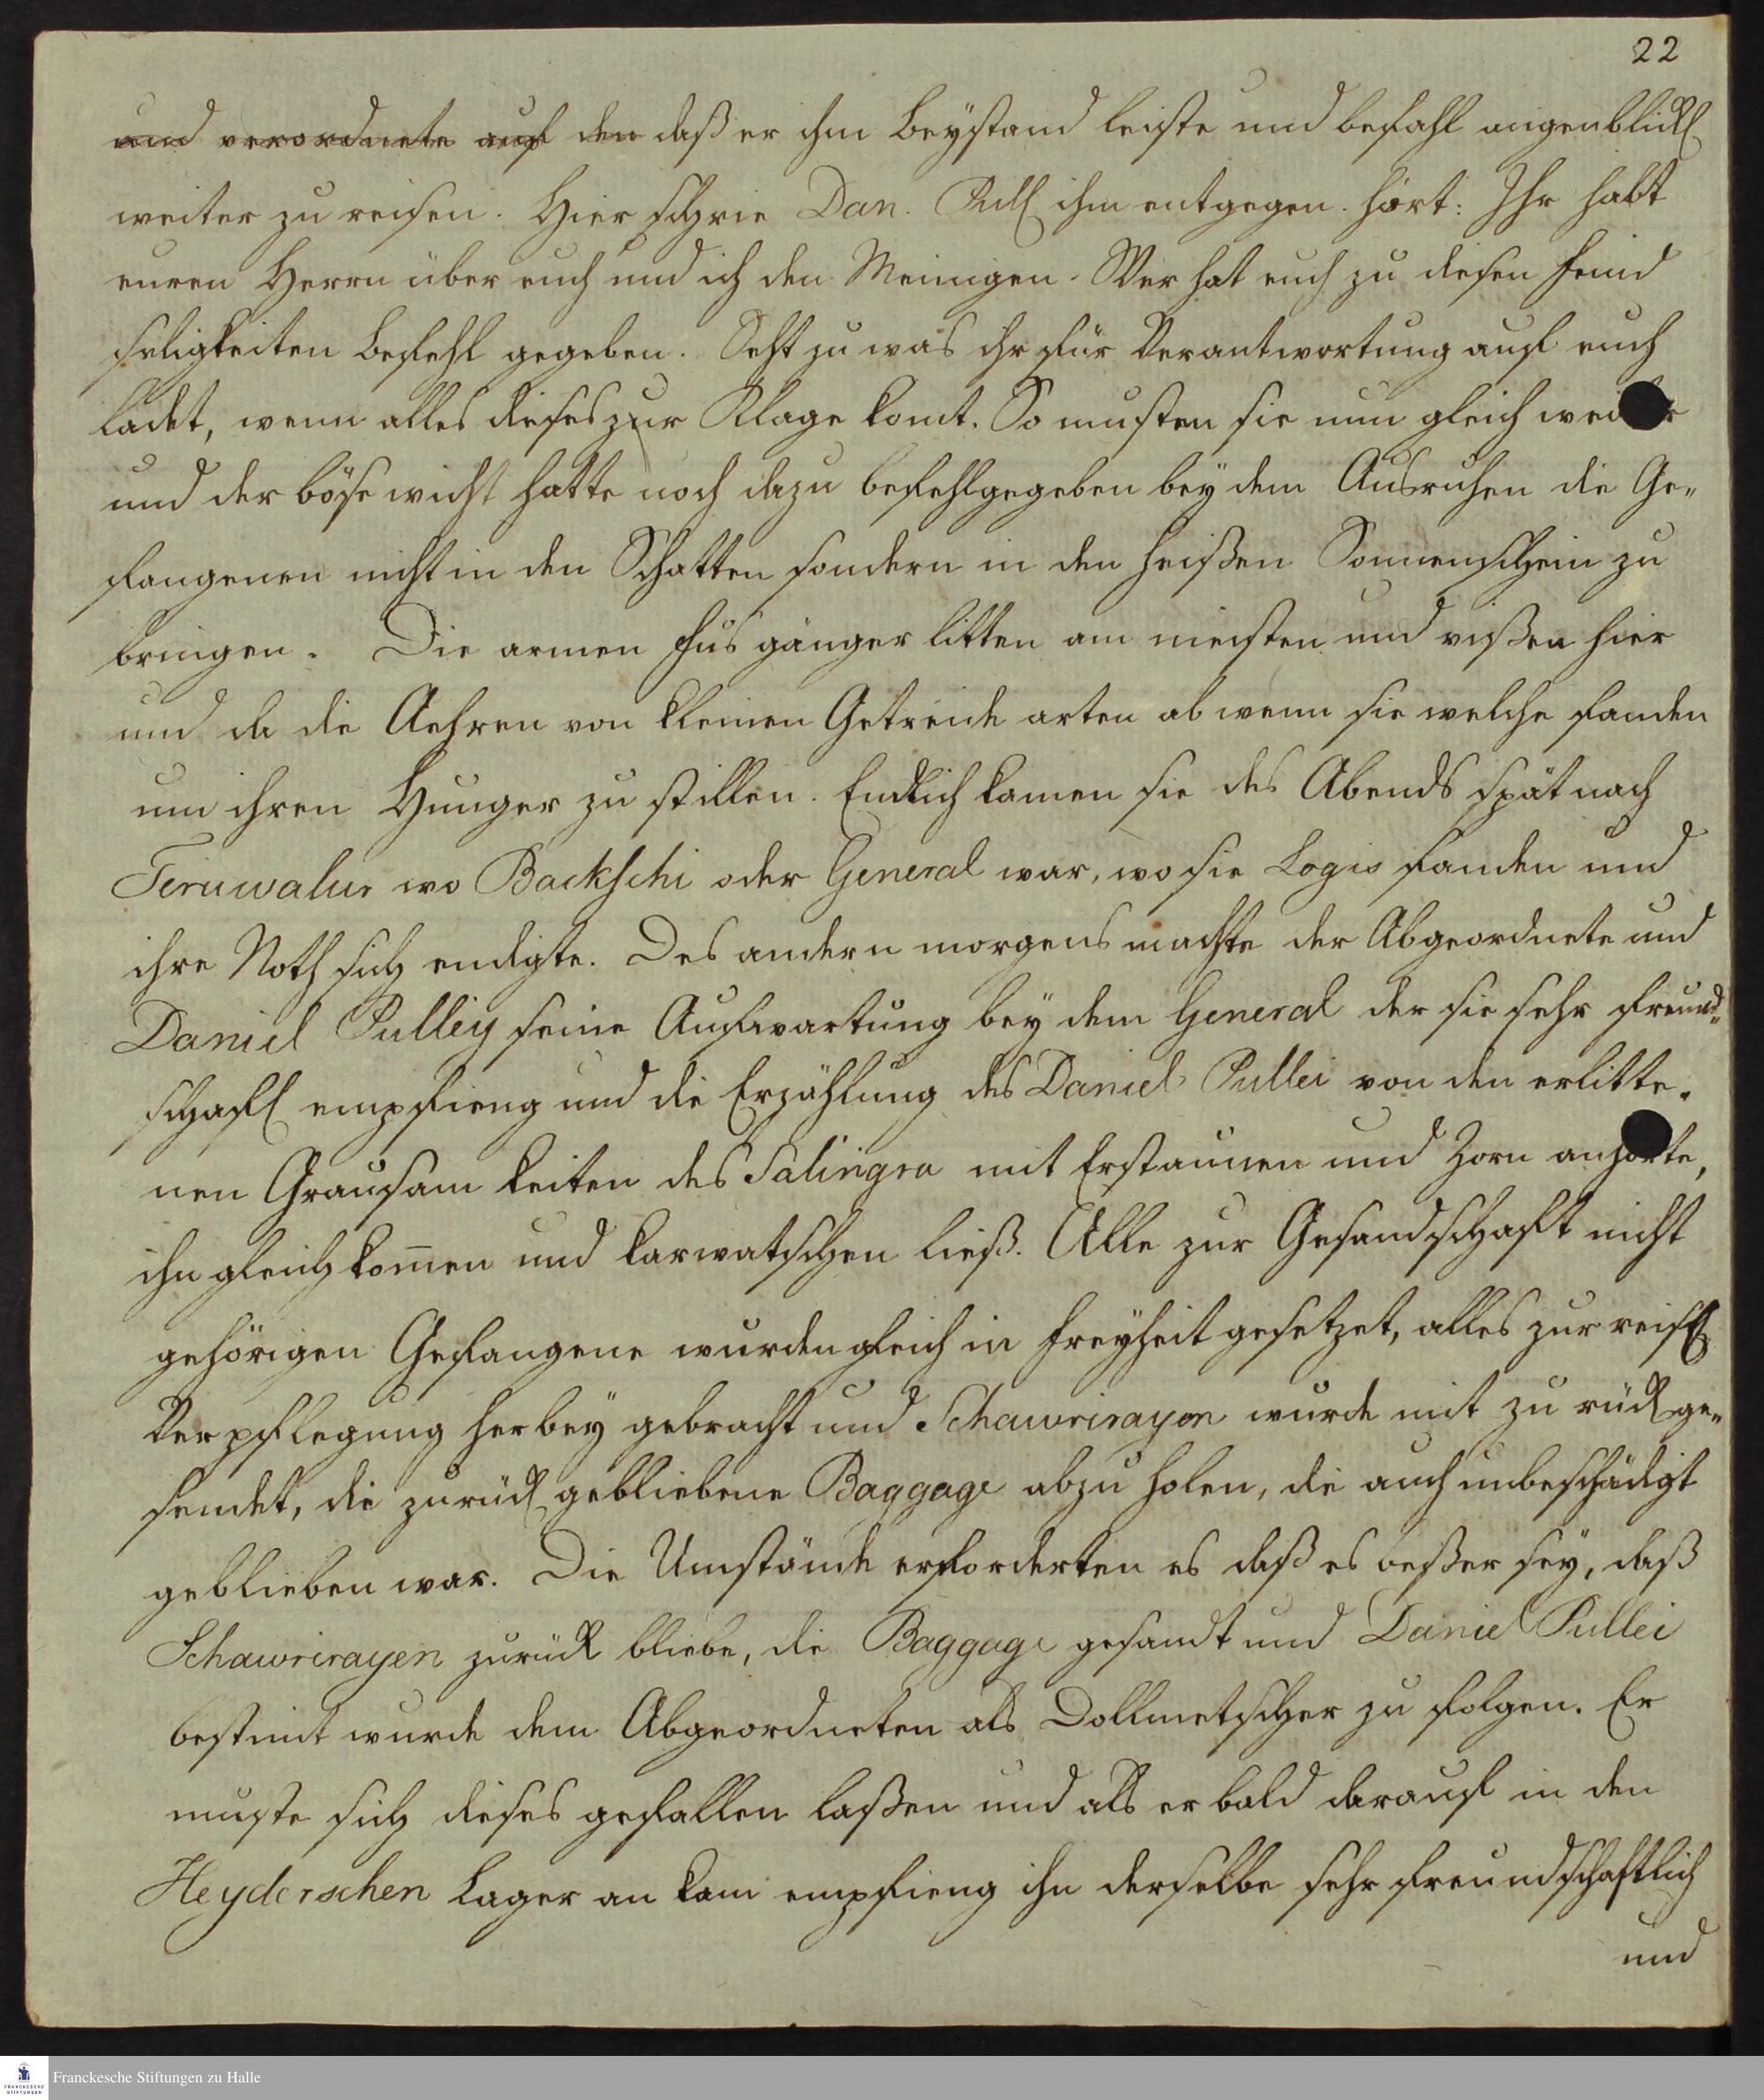 22
und verordnete auf den daß er ihm Beystand leiste und befahl augenblickl
weiter zu reisen. Hier schrie Dan. Pull ihm entgegen. hört: Ihr habt
euren Herrn über euch und ich den Meinigen. Wer hat euch zu diesen Feind
seligkeiten Befehl gegeben. Seht zu was ihr für Verantwortung auf euch
ladet, wenn alles dieses zur Klage komt. So musten sie nun gleich weiter
und der bösewicht hatte noch dazu befehl gegeben bey dem Ausruhen die Ge„
fangenen nicht in den Schatten sondern in den heißen Sonnenschein zu
bringen. Die armen Fus gänger litten am meisten und rißen hier
und da die Aehren von kleinen Getreide arten ab wenn sie welche fanden
um ihren Hunger zu stillen. Endlich kamen sie des Abends spät nach
Tiruwalur wo Backschi oder General war, wo sie Logis fanden und
ihre Noth sich endigte. Des andern morgens machte der Abgeordnete und
Daniel Pulley seine Aufwartung bey dem General der sie sehr freund„
schafl empfieng und die Erzählung des Daniel Pullei von den erlitte„
nen Grausam keiten des Salingra mit Erstaunen und Zorn anhörte,
ihn gleich kom̅en und karwatschen ließ. Alle zur Gesandschaft nicht
gehörigen Gefangene wurden gleich in Freyheit gesetzet, alles zur reisl
Verpflegung herbey gebracht und Schawrirayen wurde mit zu rück ge„
sendet, die zurück gebliebene Baggage abzu holen, die auch unbeschädigt
geblieben war. Die Umstände erforderten es daß es beßer sey, daß
Schawrirayen zurück bliebe, die Baggage gesandt und Daniel Pullei
bestimt wurde dem Abgeordneten als Dollmetscher zu folgen. Er
muste sich dieses gefallen laßen und als er bald darauf in den
Heyderschen Lager an kam empfieng ihn derselbe sehr freundschaftlich
und
Franckesche Stiftungen zu Halle
FRANCKESCHE
STIFTUNGEN